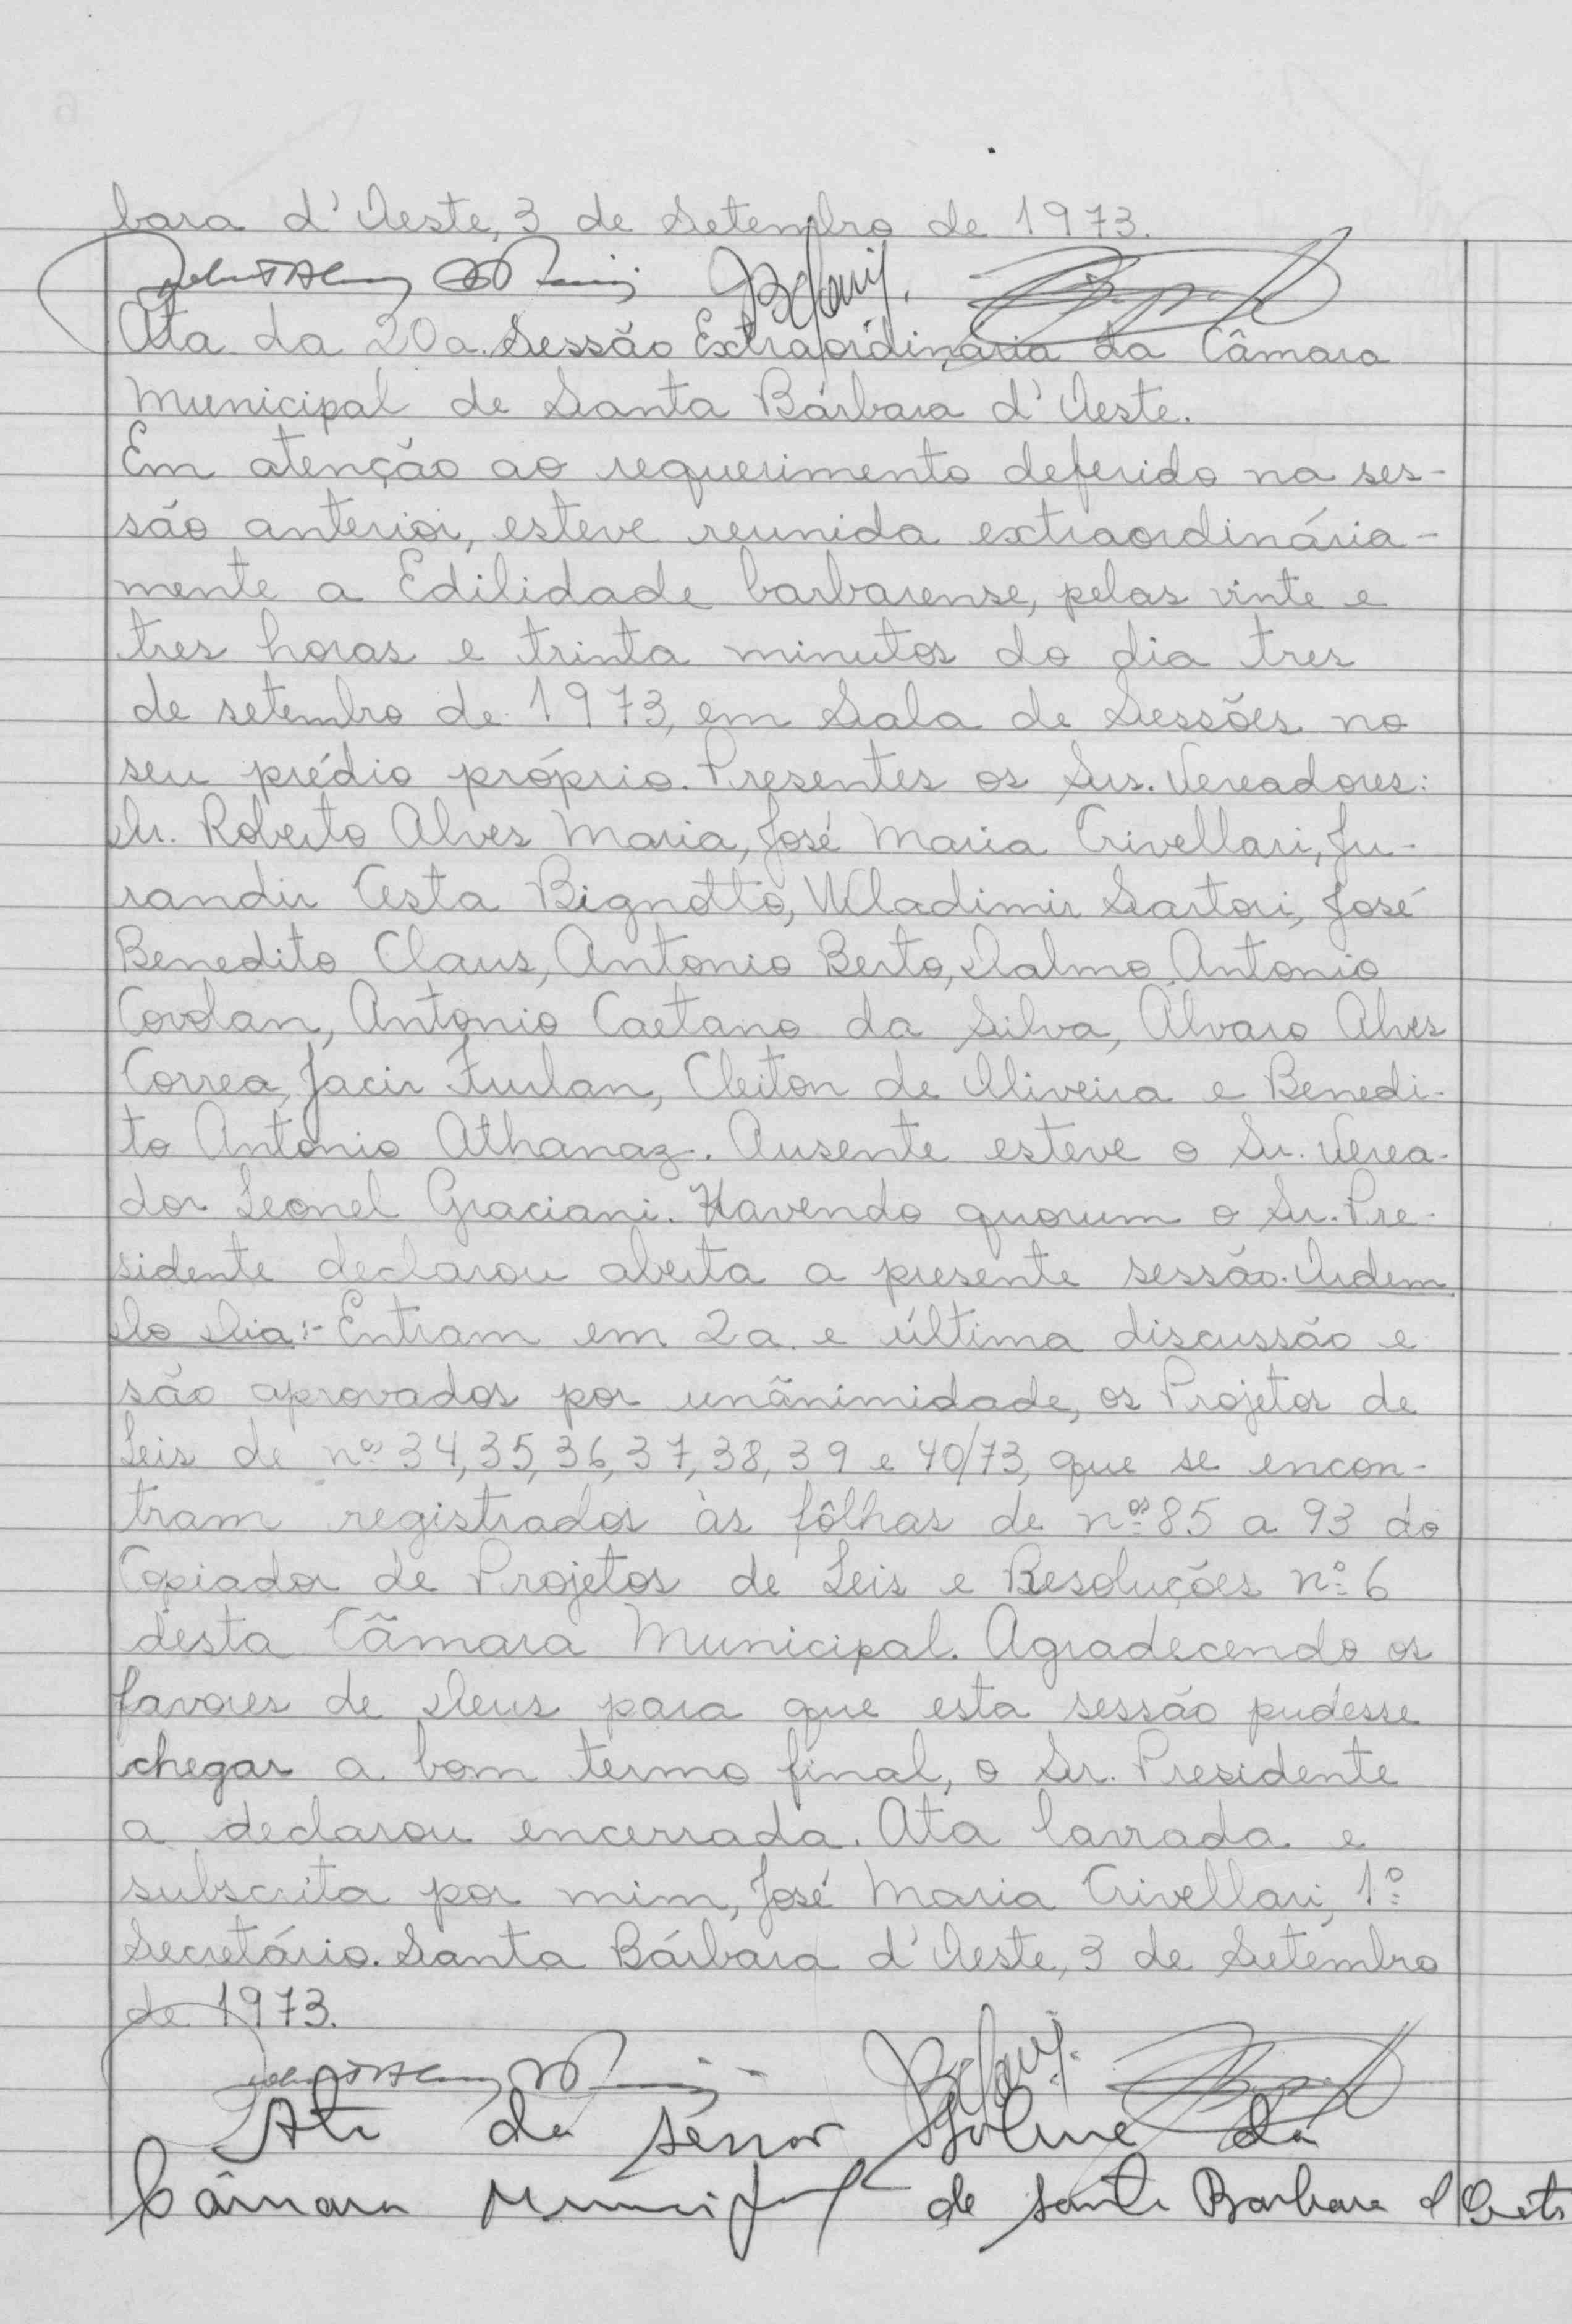 bara d'Oeste, 3 de Setembro de 1973.
Ata da 20a. Sessão Extraordinária da Câmara
Municipal de Santa Bárbara d'Oeste.
Em atenção ao requerimento deferido na ses-
são anterior, esteve reunida extraordinária-
mente a Edilidade barbarense, pelas vinte e
tres horas e trinta minutos do dia tres
de setembro de 1973, em Sala de Sessões no
seu prédio próprio. Presentes os Srs. Vereadores:
Dr. Roberto Alves Maria, José Maria Crivellari, Ju-
randir Cesta Bignotto, Wladimir Sartori, José
Benedito Claus, Antonio Berto, Dalmo Antonio
Covolan, Antonio Caetano da Silva, Álvaro Alves
Correa, Jacir Furlan, Cleiton de Oliveira e Benedi-
to Antonio Athanaz. Ausente esteve o Sr. Verea-
dor Leonel Graciani. Havendo quorum o Sr. Pre-
sidente declarou aberta a presente sessão. Ordem
do Dia:- Entram em 2a. e última discussão e
são aprovados por unânimidade, os Projetos de
Leis de nos 34, 35, 36, 37, 38, 39 e 40/73, que se encon-
tram registrados às fôlhas de nos 85 a 93 do
Copiador de Projetos de Leis e Resoluções nº 6
desta Câmara Municipal. Agradecendo os
favores de Deus para que esta sessão pudesse
chegar a bom termo final, o Sr. Presidente
a declarou encerrada. Ata lavrada e
subscrita por mim, José Maria Crivellari, 1º
Secretário. Santa Bárbara d'Oeste, 3 de Setembro
de 1973.
Ata da sessão Solene da
Câmara Municipal de Santa Barbara d'Oeste